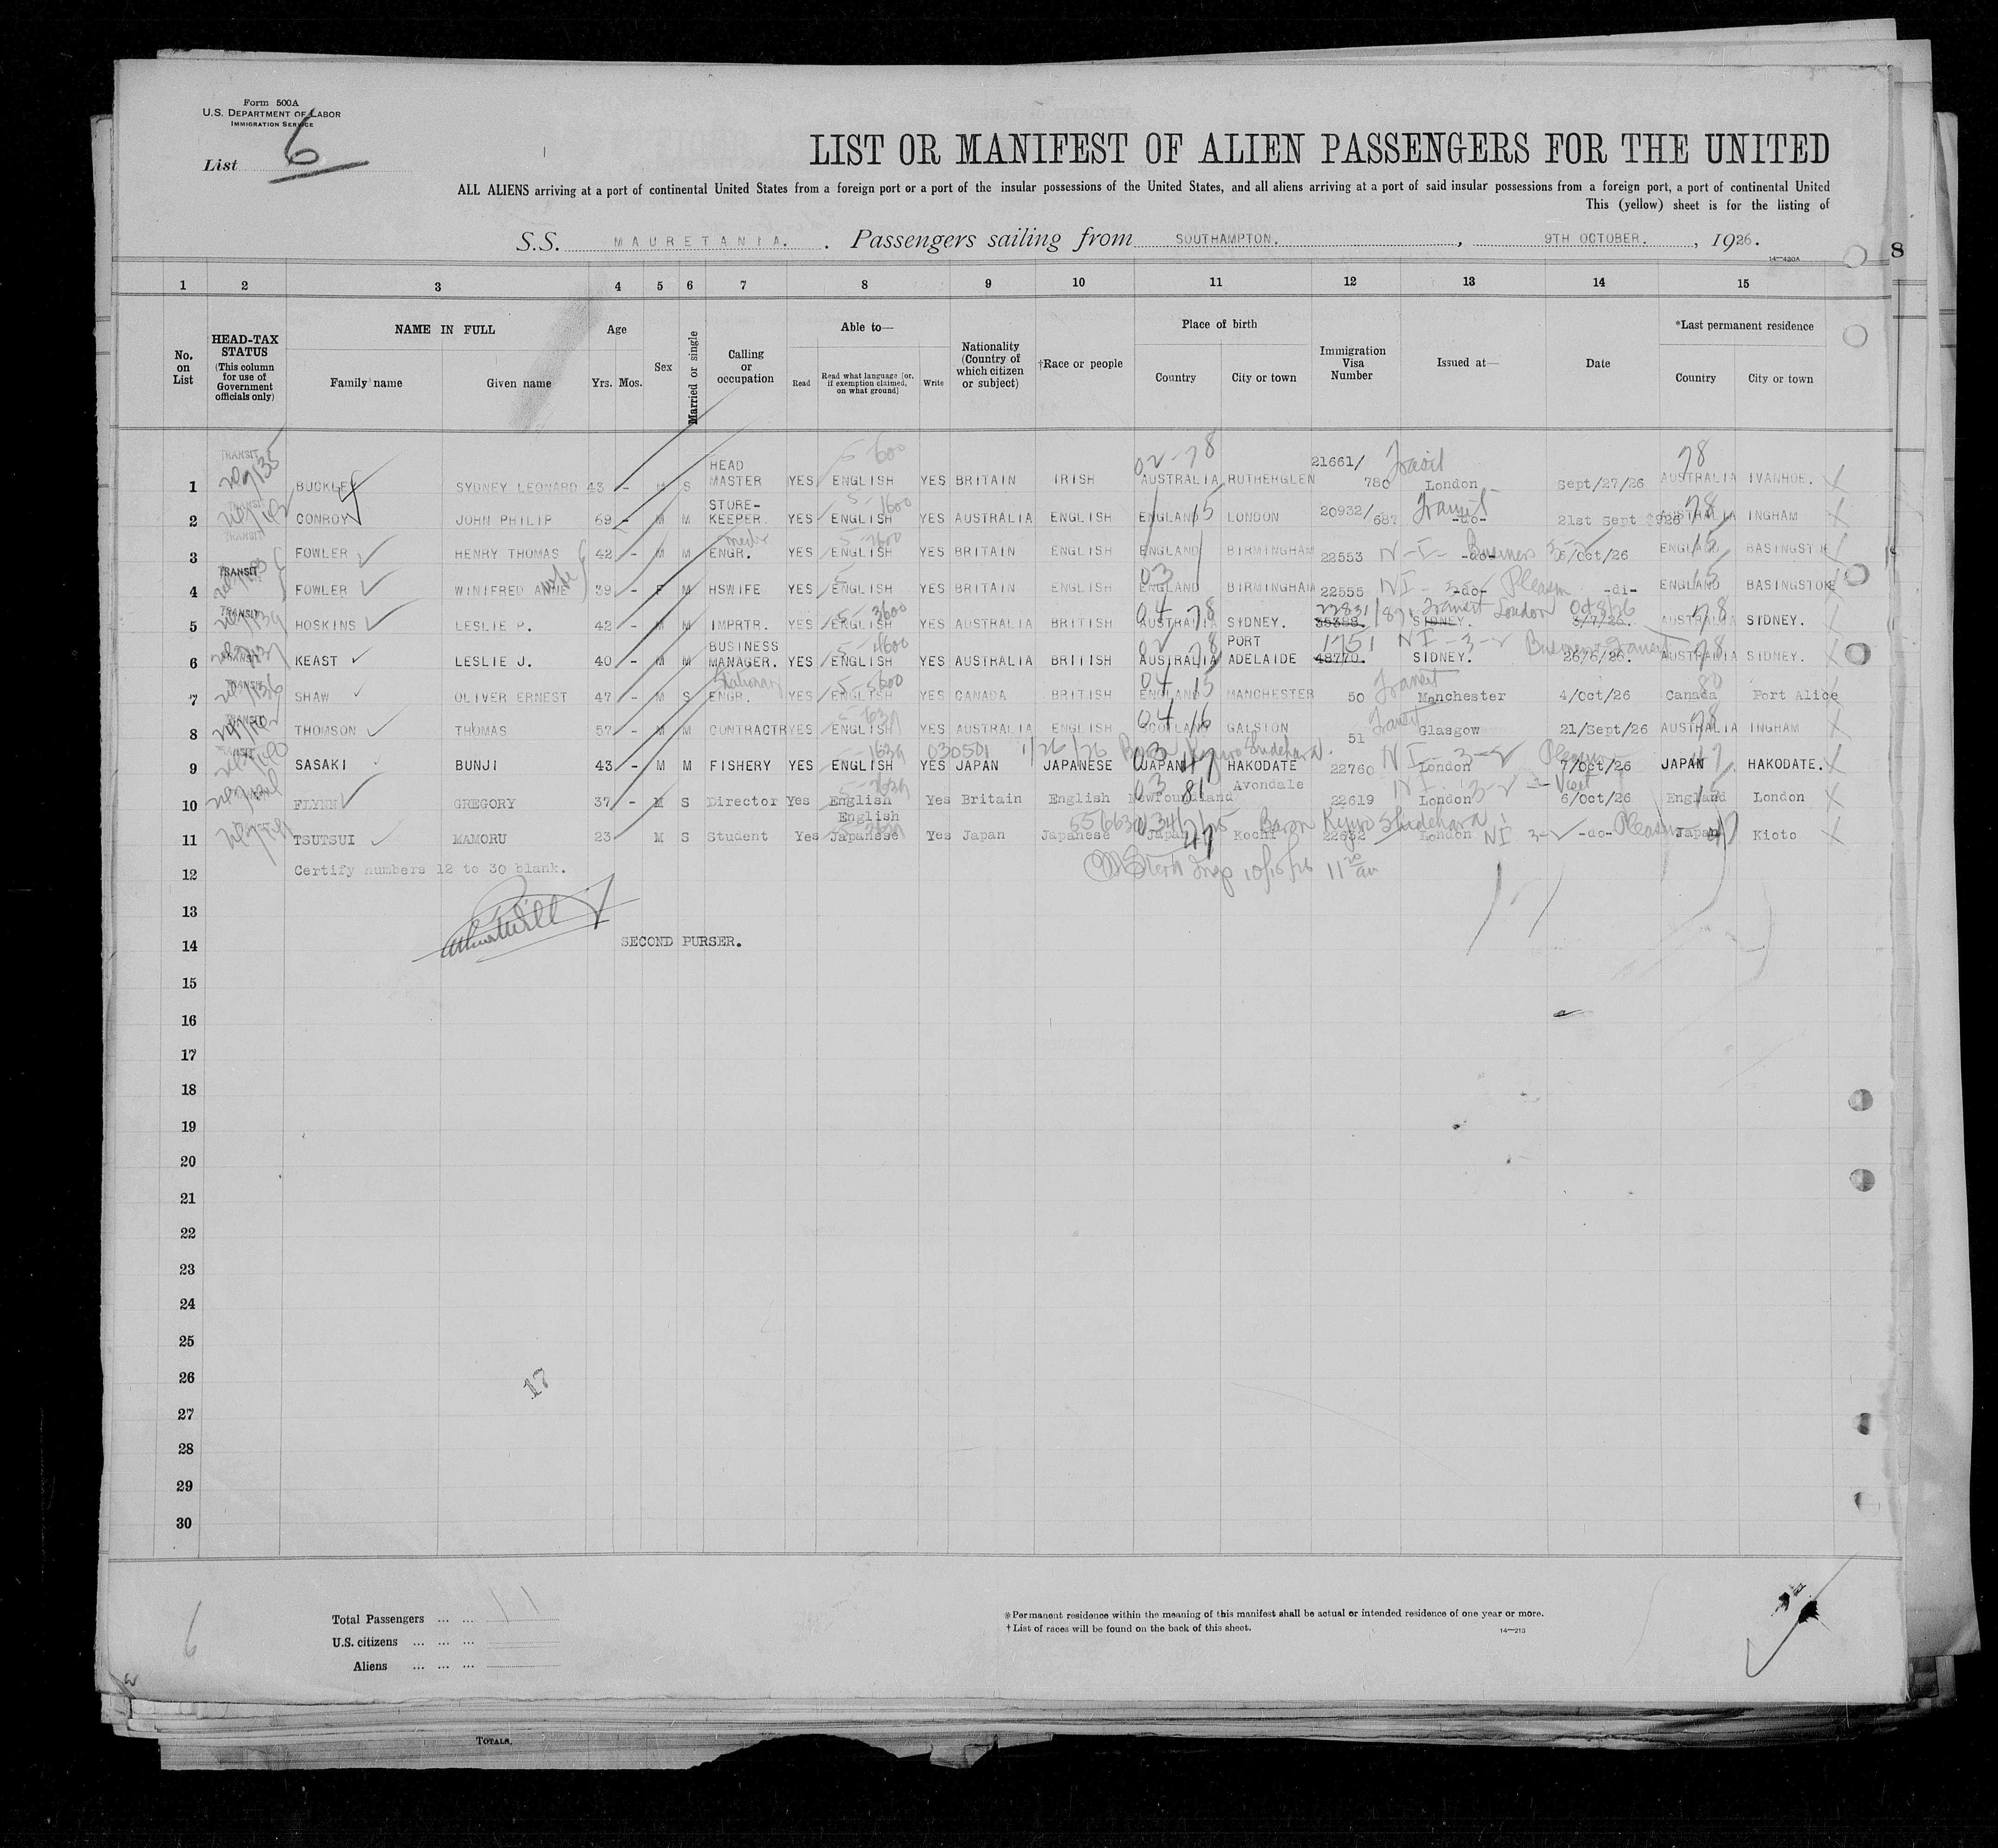 Form 500A
U.S. DEPARTMENT OF LABOR
IMMIGRATION SERVICE
List 6
LIST OR MANIFEST OF ALIEN PASSENGERS FOR THE UNITED
ALL ALIENS arriving at a port of continental United States from a foreign port or a port of the insular possessions of the United States, and all aliens arriving at a port of said insular possessions from a foreign port, a port of continental United
This (yellow) sheet is for the listing of
S.S. MAURETANIA. Passengers sailing from SOUTHAMPTON. , 9TH OCTOBER. , 1926.
14—430A
8
1 2 3 4 5 6 7 8 9 10 11 12 13 14 15
No. on List
HEAD-TAX STATUS (This column for use of Government officials only)
NAME IN FULL
Family name Given name
Age
Yrs. Mos.
Sex
Married or single
Calling or occupation
Able to—
Read Read what language [or, if exemption claimed, on what ground] Write
Nationality (Country of which citizen or subject)
†Race or people
Place of birth
Country City or town
Immigration Visa Number
Issued at—
Date
*Last permanent residence
Country City or town
1 TRANSIT BUCKLEY SYDNEY LEONARD 43 - M S HEAD MASTER YES ENGLISH 5-600 YES BRITAIN IRISH 02-78 AUSTRALIA RUTHERGLEN 21661/780 Transit London Sept/27/26 78 AUSTRALIA IVANHOE.
2 TRANSIT CONROY JOHN PHILIP 69 - M M STORE-KEEPER. YES ENGLISH 5-1600 YES AUSTRALIA ENGLISH ENGLAND 15 LONDON 20932/687 Transit -do- 21st Sept 1926 78 AUSTRALIA INGHAM
3 TRANSIT FOWLER HENRY THOMAS 42 - M M ENGR. YES ENGLISH 5-2600 YES BRITAIN ENGLISH ENGLAND BIRMINGHAM 22553 N-I- -do- Business 3-2 6/Oct/26 ENGLAND 15 BASINGSTKE
4 TRANSIT FOWLER WINIFRED ANNE wife 39 - F M HSWIFE YES ENGLISH 5- YES BRITAIN ENGLISH 03 ENGLAND BIRMINGHAM 22555 NI- -do- Pleasure -di- ENGLAND 15 BASINGSTOKE
5 TRANSIT HOSKINS LESLIE P. 42 - M M IMPRTR. YES ENGLISH 5-3600 YES AUSTRALIA BRITISH 04 78 AUSTRALIA SIDNEY. 22831/891 35388. Transit London SIDNEY. Oct 8/26 8/7/26. 78 AUSTRALIA SIDNEY.
6 TRANSIT KEAST LESLIE J. 40 - M M BUSINESS MANAGER. YES ENGLISH 5-4600 YES AUSTRALIA BRITISH 02 78 AUSTRALIA PORT ADELAIDE 1751 48770. NI-3-2 SIDNEY. Business Transit 26/6/26. 78 AUSTRALIA SIDNEY.
7 TRANSIT SHAW OLIVER ERNEST 47 - M S Stationary ENGR. YES ENGLISH 5-5600 YES CANADA BRITISH 04 15 ENGLAND MANCHESTER 50 Transit Manchester 4/Oct/26 80 Canada Port Alice
8 TRANSIT THOMSON THOMAS 57 - M M CONTRACTR YES ENGLISH YES AUSTRALIA ENGLISH 04 16 SCOTLAND GALSTON 51 Transit Glasgow 21/Sept/26 78 AUSTRALIA INGHAM
9 SASAKI BUNJI 43 - M M FISHERY YES ENGLISH 5-1639 YES JAPAN 030501 1/26/26 JAPANESE Baron Kijuro Shidehara. 03 47 JAPAN HAKODATE 22760 NI-3-2 London Pleasure 7/Oct/26 JAPAN 47 HAKODATE.
10 FLYNN GREGORY 37 - M S Director Yes English 5-2639 Yes Britain English 03 81 Newfoundland Avondale 22619 NI-3-2 London Visit 6/Oct/26 England 15 London
11 TSUTSUI MAMORU 23 M S Student Yes English Japanese Yes Japan Japanese Japan 47 Kochi Baron Kijuro Shidehara 22632 London NI 3-2 -do- Pleasure Japan 47 Kioto
12 Certify numbers 12 to 30 blank. Insp 10/15/26 11 20 am
13
14 SECOND PURSER.
15
16
17
18
19
20
21
22
23
24
25
26 17
27
28
29
30
6
Total Passengers ... ... 11
U.S. citizens ... ... ...
Aliens ... ... ...
*Permanent residence within the meaning of this manifest shall be actual or intended residence of one year or more.
†List of races will be found on the back of this sheet. 14—213
TOTALS.